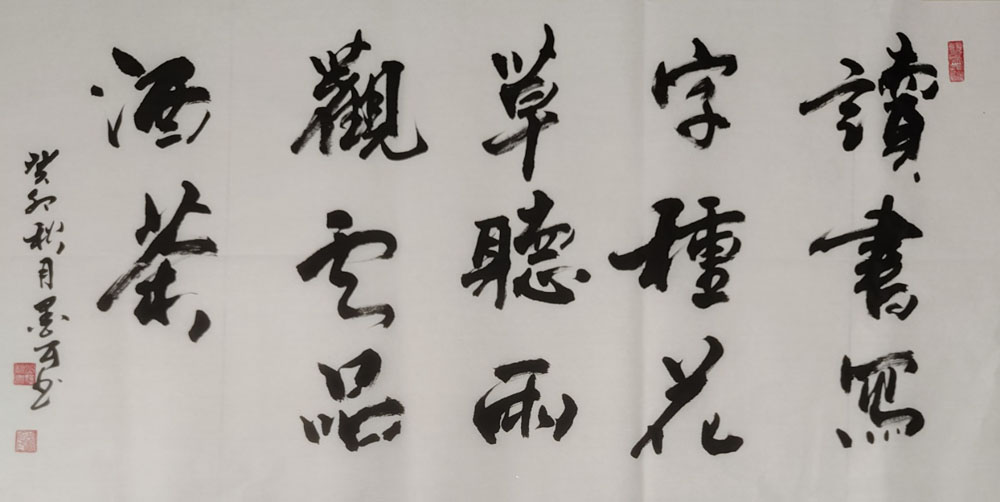 讀書寫
字種花
草聽雨
觀雲品
酒茶
癸卯秋月墨石书